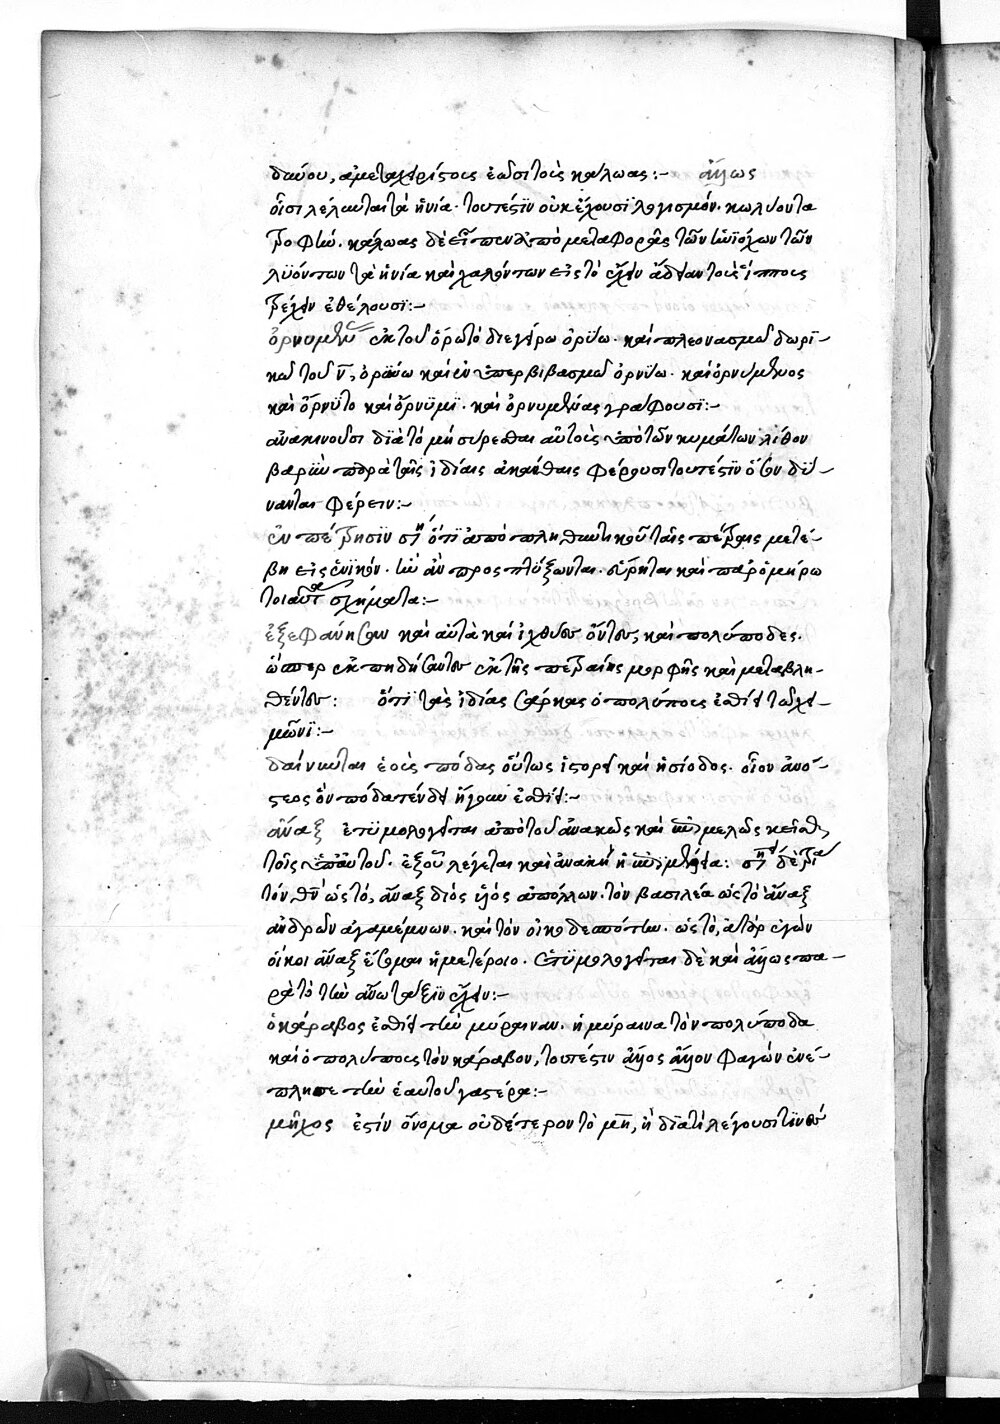 δαύου, ἀμεταχειρίστους ἐῶσι τοὺς κάλωας :- ἄλλως
οἷσι λέλυνται τὰ ἡνία. τουτέστιν οὐκ ἔχουσι λογισμόν. κωλύοντα
τροφήν. κάλωας δὲ εἶπεν ἀπὸ μεταφορᾶς τῶν ἡνιόχων τῶν
λυόντων τὰ ἡνία καὶ χαλώντων εἰς τὸ ἔχειν ἄδειαν τοὺς ἵππους
τρέχειν ἐθέλουσι :-
ὀρνυμεν ἐκ τοῦ ὄρω τὸ διεγείρω ὀρύω. καὶ πλεονασμῶ δωρι-
κῶ τοῦ ν, ὀρύνω καὶ ἐν ὑπερβιβασμῶ ὀρνύω. καὶ ὀρνυμενος
καὶ ὄρνυτο καὶ ὄρνυμι. καὶ ὀρνυμένας γράφουσι :-
ἀνακινοῦσι διὰ τὸ μὴ σύρεσθαι αὐτοὺς ὑπὸ τῶν κυμάτων λίθον
βαρὺν παρὰ ταῖς ἰδίαις ἀκάνθαις φέρουσι τουτέστιν ὅσον δύ-
νανται φέρειν :-
ἐν πέτρησιν ὅτι ἀπὸ πληθυντικοῦ ταῖς πέτραις μετέ-
βη εἰς ἑνικόν. ἣν ἂν προσπτύξωνται. εὕρηται καὶ παρ' ὁμήρω
τοιαῦτα σχήματα :-
ἐξεφαάνησαν καὶ αὐτὰ καὶ ἰχθύων ὄντων, καὶ πολύποδες.
ὥσπερ ἐκπηδήσαντων ἐκ τῆς πετραίης μορφῆς καὶ μεταβλη-
θέντων : ὅτι τὰς ἰδίας σάρκας ὁ πολύπους ἐσθίει τῶ χει-
μῶνι :-
δαίνυται ἑοὺς πόδας οὕτως ἱστορεῖ καὶ ἡσίοδος. οἷον ἀνό-
στεος ὃν πόδα τένδει ἤγουν ἐσθίει :-
ἄναξ ἐτυμολογεῖται ἀπὸ τοῦ ἀνακῶς καὶ ἐπιμελῶς κεῖσθ
τοῖς ὑπ' αὐτοῦ. ἐξοῦ λέγεται καὶ ἀνακὴ ἡ ἐπιμέλεια : δὲ τρία
τὸν θν ὡς τό, ἄναξ διὸς υἱὸς ἀπόλλων. τὸν βασιλέα ὡς τὸ ἄναξ
ἀνδρῶν ἀγαμέμνων. καὶ τὸν οἰκοδεσπότην. ὡς τό, αὐτὰρ ἐγὼν
οἴκοι ἄναξ ἔσομαι ἡμετέροιο. ἐτυμολογεῖται δὲ καὶ ἄλλως πα-
ρὰ τὸ τὴν ἄνω τάξιν ἔχειν :-
ὁ κάραβος ἐσθίει τὴν μύραιναν. ἡ μύραινα τὸν πολύποδα
καὶ ὁ πολύπους τὸν κάραβον, τουτέστιν ἄλλος ἄλλον φαγὼν ἐνέ-
πλησε τὴν ἑαυτοῦ γαστέρα :-
μῆχος ἐστὶν ὄνομα οὐδέτερον τὸ μῆ, ἢ διατί λέγουσι τινὲς